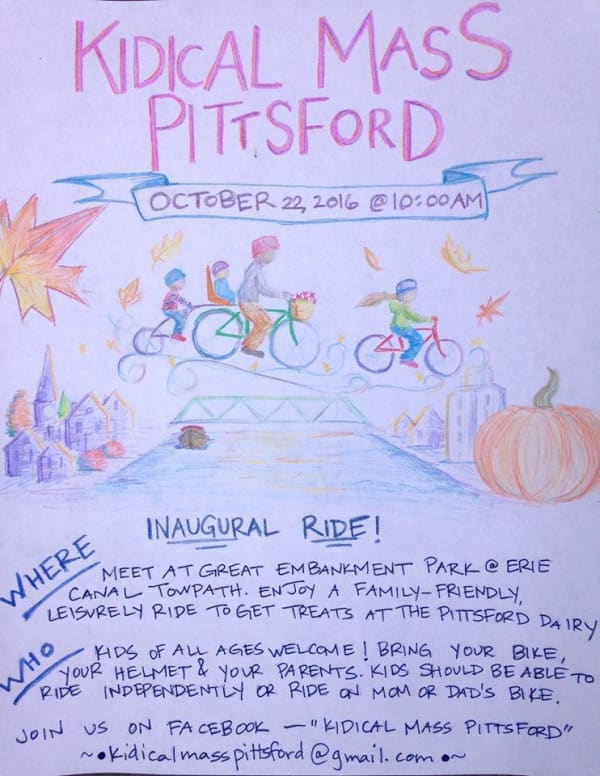 KIDICAL MASS
PITTSFORD
OCTOBER 22, 2016 @ 10:00AM
INAUGURAL RIDE!
WHERE MEET AT GREAT EMBANKMENT PARK @ ERIE
CANAL TOWPATH. ENJOY A FAMILY-FRIENDLY,
LEISURELY RIDE TO GET TREATS AT THE PITTSFORD DAIRY
WHO KIDS OF ALL AGES WELCOME! BRING YOUR BIKE,
YOUR HELMET & YOUR PARENTS. KIDS SHOULD BE ABLE TO
RIDE INDEPENDENTLY OR RIDE ON MOM OR DAD'S BIKE.
JOIN US ON FACEBOOK — "KIDICAL MASS PITTSFORD"
~•kidicalmasspittsford@gmail.com•~